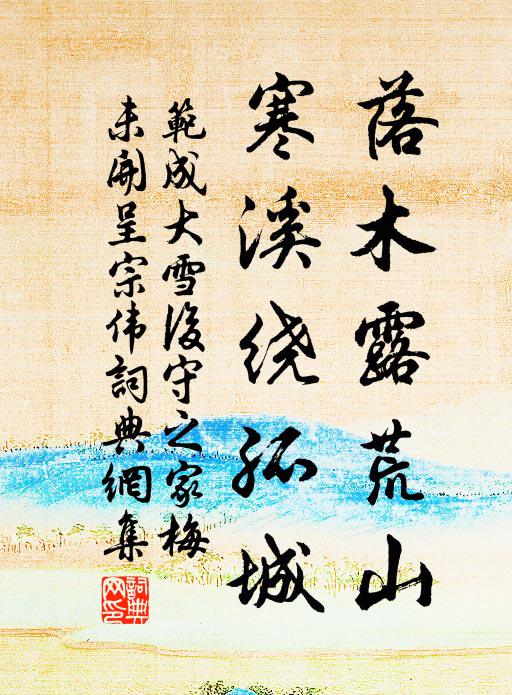 落木露荒山
寒溪绕孤城
範成大雪後守之家梅
未開呈宗伟詞典網集
詞典网印